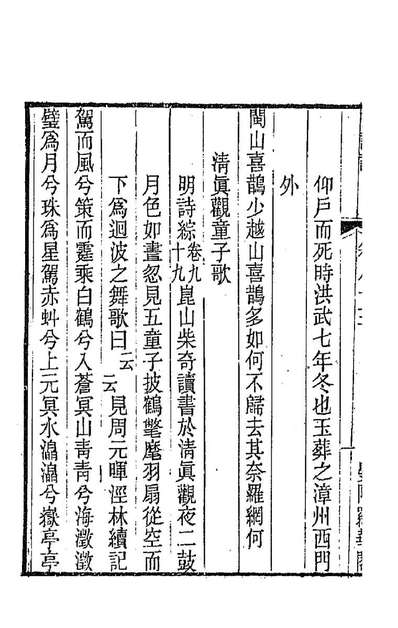 仰戶而死時洪武七年冬也玉葬之漳州西門
外
閩山喜鵲少越山喜鵲多如何不歸去其奈羅網何
清眞觀童子歌
明詩綜卷九十九崑山柴奇讀書於清眞觀夜二鼓
月色如晝忽見五童子披鶴氅麾羽扇從空而
下爲迴波之舞歌曰云云見周元暐涇林續記
駕而風兮策而霆乘白鶴兮入蒼冥山靑靑兮海澂澂
璧爲月兮珠爲星駕赤虯兮上元冥水湯湯兮嶽亭亭